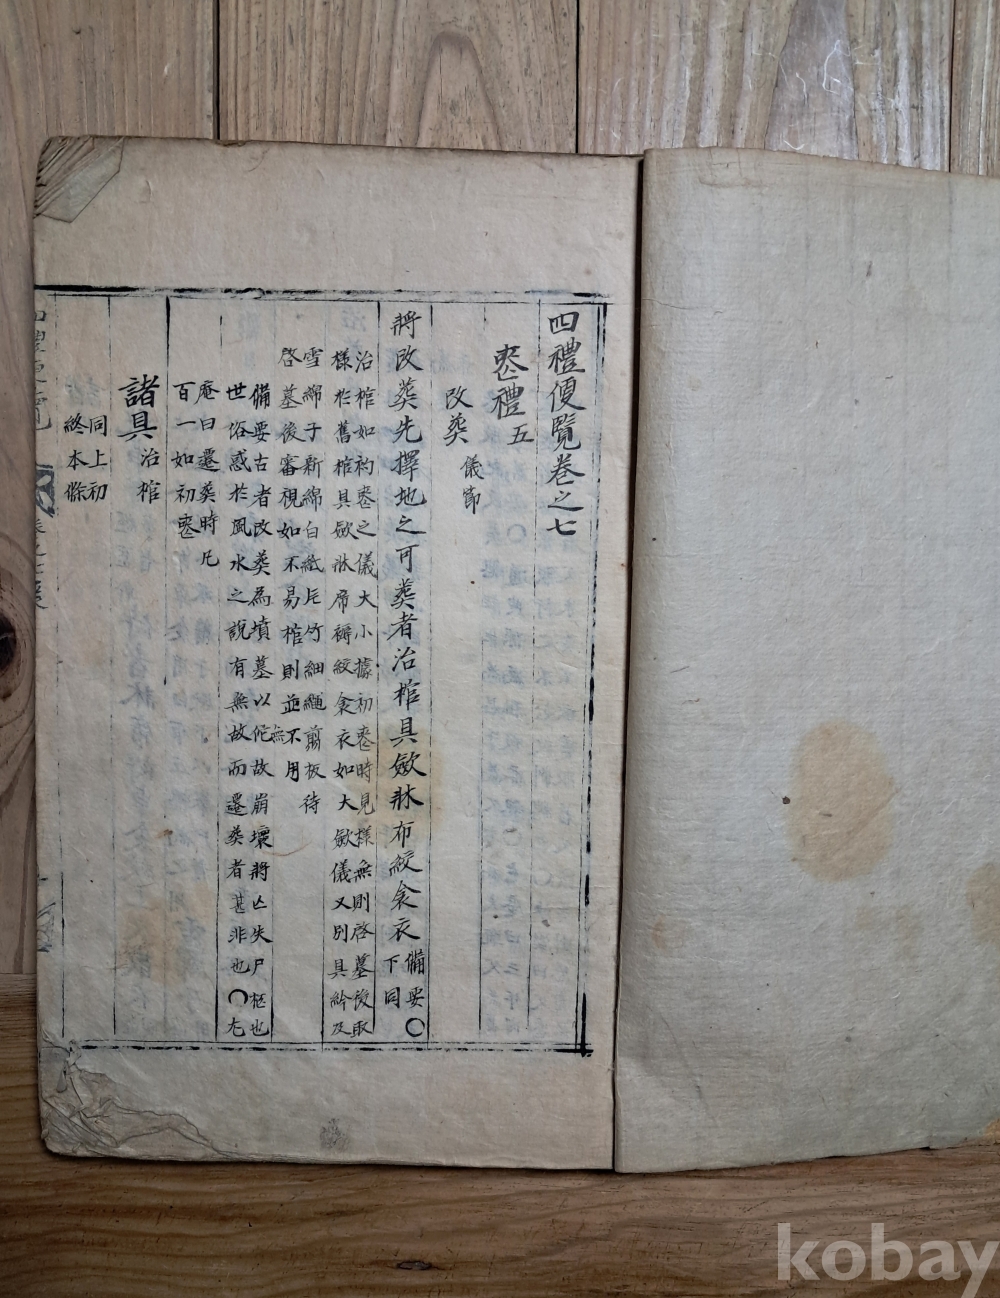 四禮便覽卷之七
喪禮五
改葬 儀節
將改葬先擇地之可葬者治棺具斂牀布絞衾衣 備要○下同
治棺如初喪之儀大小據初喪時見樣無則啓墓後取
樣於舊棺具斂牀席褥絞衾衣如大斂儀又別具紟及
雪綿子新綿白紙片竹細繩剪板待
啓墓後審視如不易棺則並不用
備要古者改葬為墳墓以佗故崩壞將亡失尸柩也
世俗惑於風水之說有無故而遷葬者甚非也○尤
庵曰遷葬時凡
百一如初喪
諸具 治棺
同上初
終本條
四禮便覽
kobay